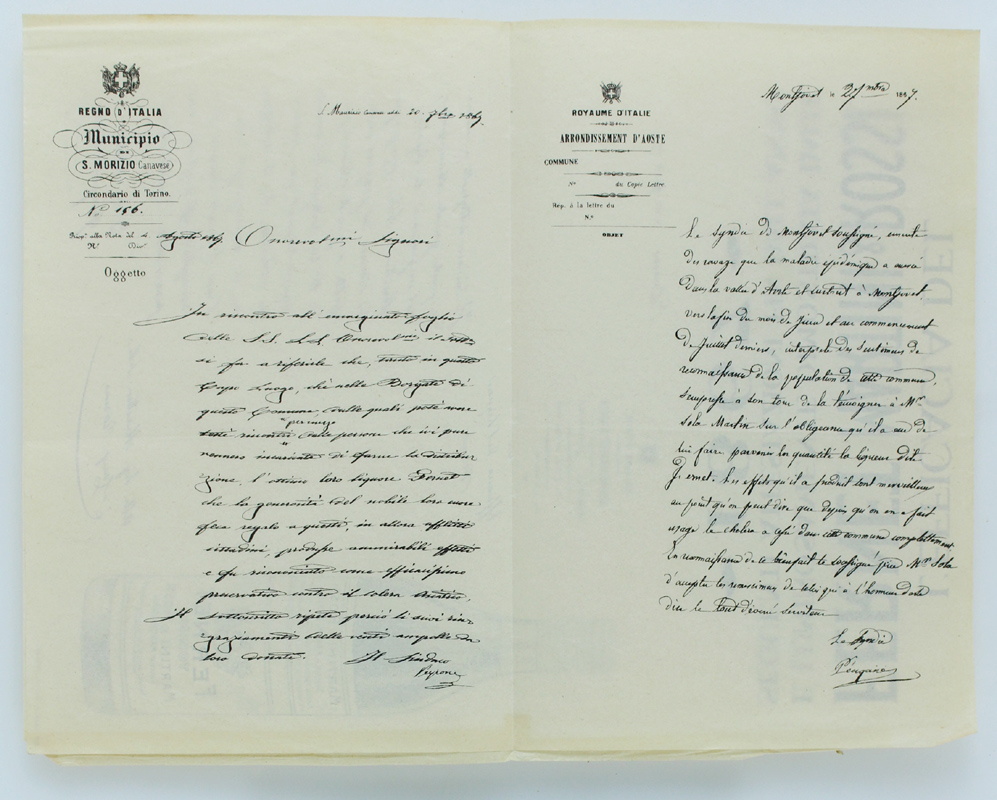 REGNO D'ITALIA
Municipio
DI
S. MORIZIO (Canavese)
Circondario di Torino.
N.° 156.
Risp.a alla Nota del 4. Agosto 1867
N.° Div.e
Oggetto
S. Maurizio Canavese addì 20. 7bre 1867
Onorevolmi Signori
In riscontro all'immaginato foglio
delle S.S. L.L. Onorevolmi il sott.
si fa a riferirle che, tanto in questo
Capo Luogo, che nelle Borgate di
questo Comune, dalle quali potè avere
per mezzo
riscontri delle persone che ivi pure
vennero incaricate di farne la distribu
zione, l'ottimo loro liquore Fernet
che la generosità del nobile loro cuore
fece regalo a questi, in allora afflitti
cittadini, produsse ammirabili effetti
e fu riconosciuto come efficacissimo
preservativo contro il colera
Il sottoscritto ripete perciò li suoi rin
graziamenti delle cento ampolle da
loro donate.
Il Sindaco
Peyrone
ROYAUME D'ITALIE
ARRONDISSEMENT D'AOSTE
COMMUNE
N.° du Copie Lettre.
Rép. à la lettre du
N.°
OBJET
Montjovet le 27 7mbre 1867.
Le Syndic de Montjovet soussigné, ensuite
des ravage que la maladie épidémique a exercé
dans la vallée d'Aoste et surtout à Montjovet
vers la fin du mois de Juin et au commencement
de Juillet derniers, interprète des sentimens de
reconnaissance de la population de cette commune,
s'empresse à son tour de la témoigner à Mr.
Sola Martin sur l'obligeance qu'il a eue de
lui faire parvenir les quantité la liqueur dite
Fernet. Les effets qu'il a produit sont merveilleux
au point qu'on peut dire que depuis qu'on en a fait
usage le choléra a cessé dans cette commune complettement
En reconnaissance de ce bienfait le soussigné prie Mr. Sola
d'accepter les remercimens de celui qui a l'honneur de se
dire le Tout dévoué Serviteur
Le Syndic